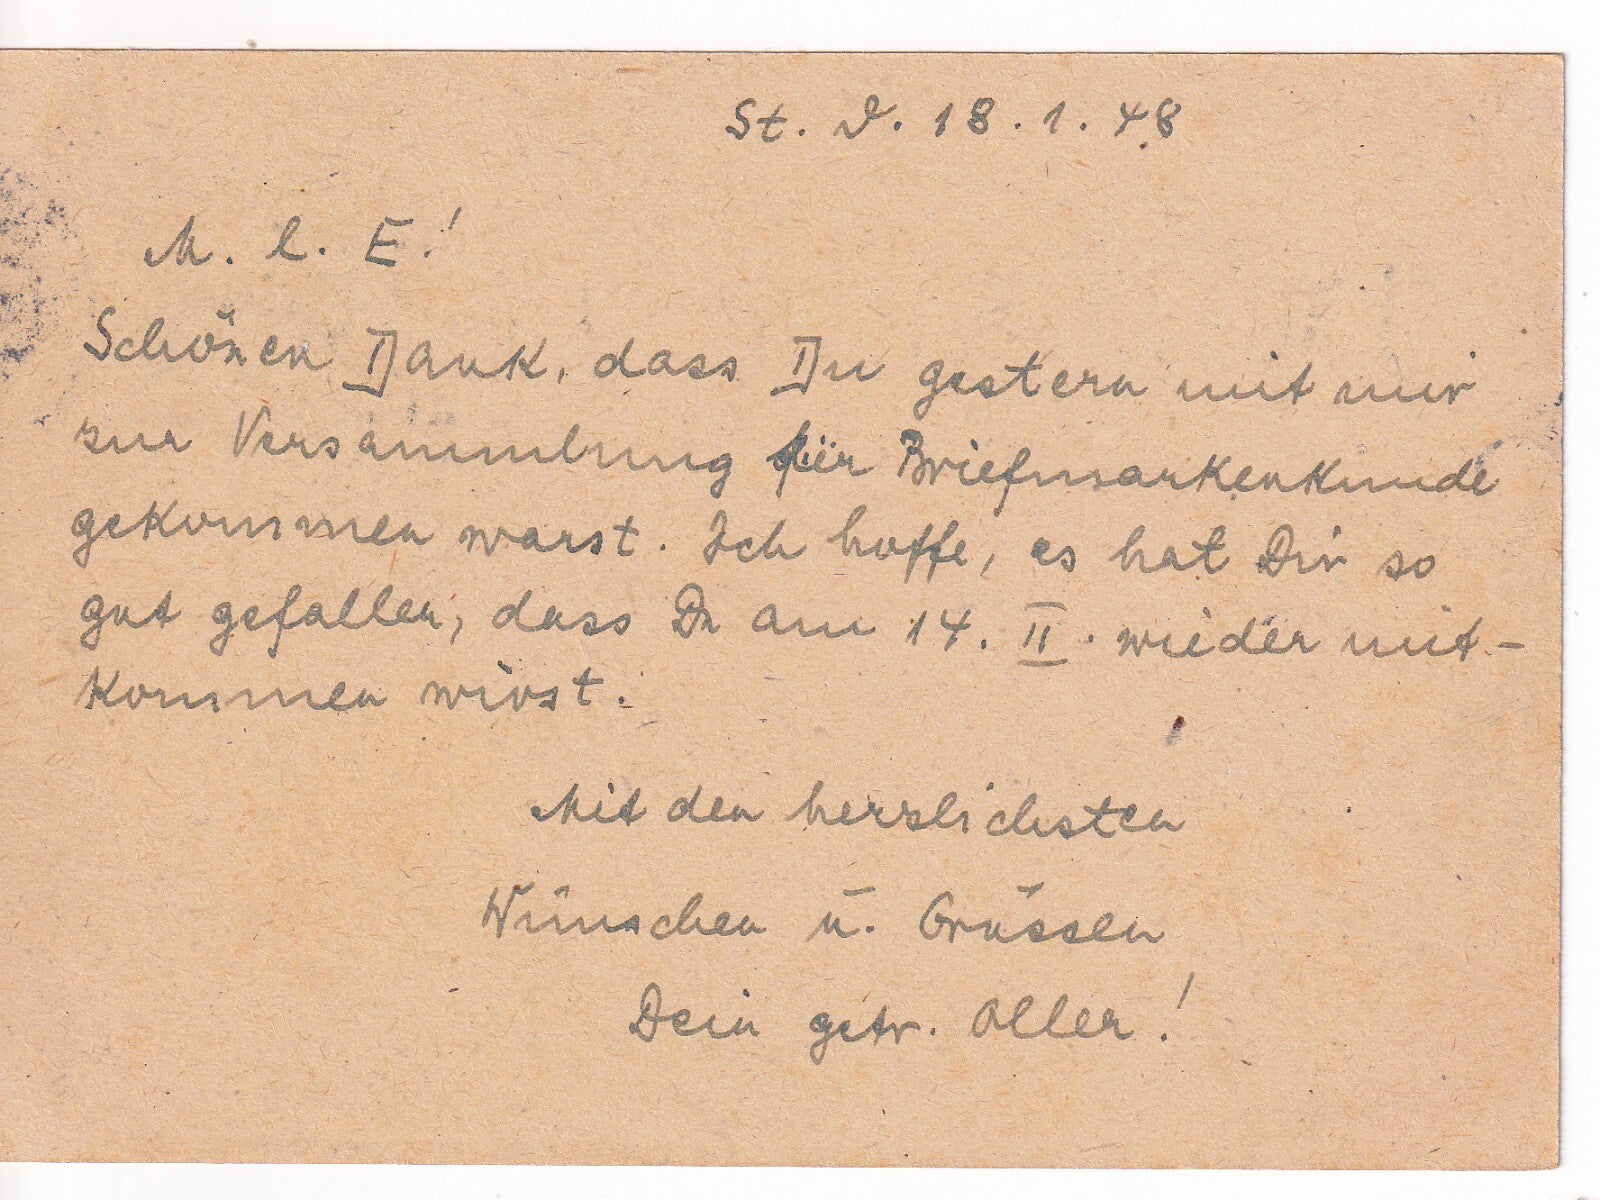 St. V. 18. 1. 48
M. l. E!
Schönen Dank, dass Du gestern mit mir
zur Versammlung für Briefmarkenkunde
gekommen warst. Ich hoffe, es hat Dir so
gut gefallen, dass Du am 14. II. wieder mit-
kommen wirst.
Mit den herzlichsten
Wünschen u. Grüssen
Dein getr. Oller!